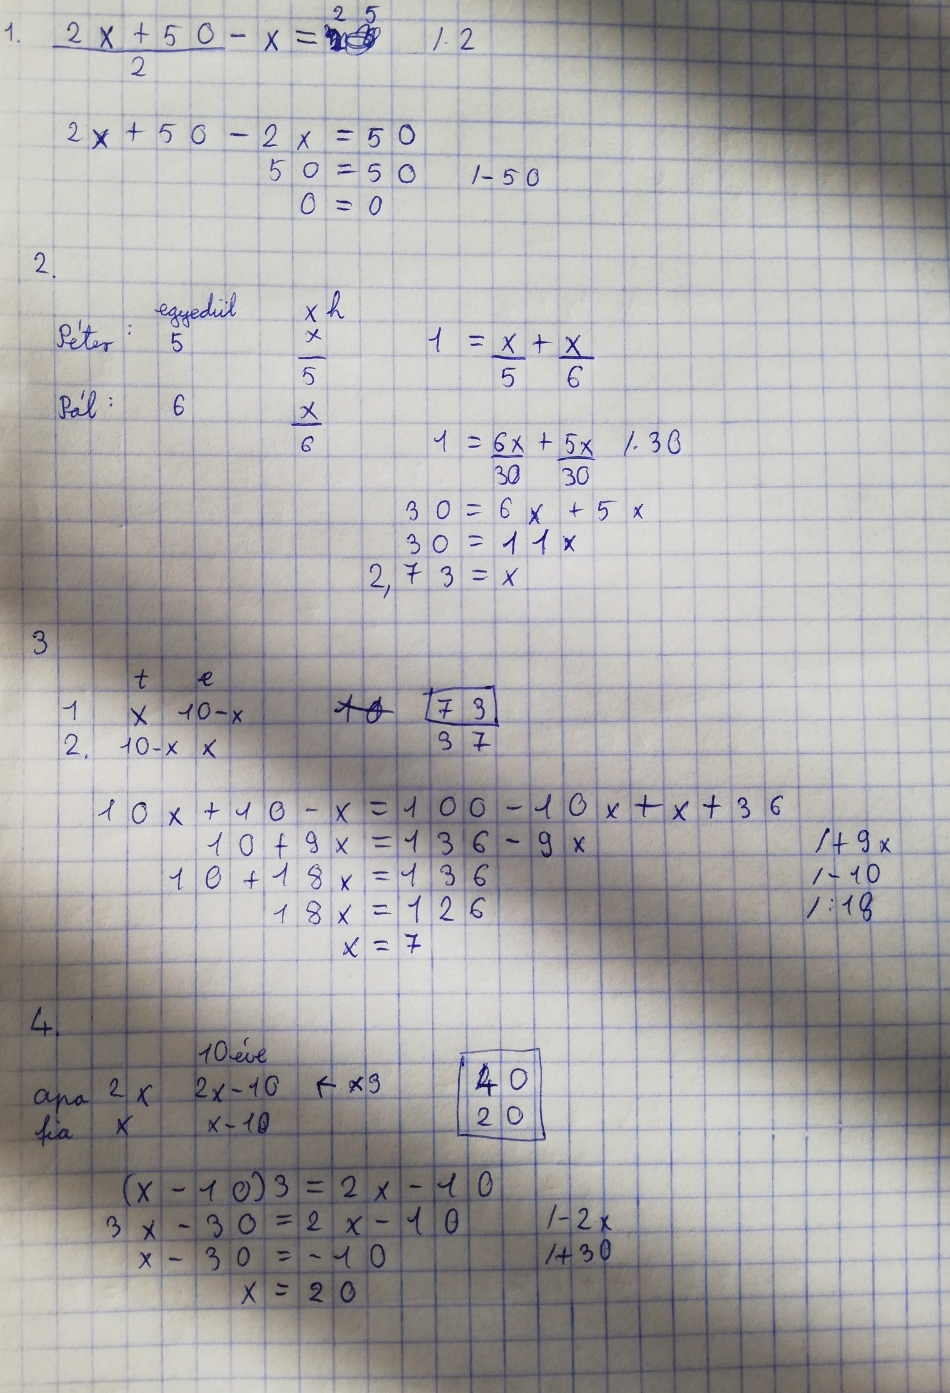 1. (2x+50)/2 - x = 25 /·2
2x+50-2x=50
50=50 /-50
0=0
2.
egyedül xh
Péter: 5 x/5 1 = x/5 + x/6
Pál: 6 x/6
1 = 6x/30 + 5x/30 /·30
30=6x+5x
30=11x
2,73=x
3
t e
1 x 10-x 73
2. 10-x x 37
10x+10-x=100-10x+x+36
10+9x=136-9x /+9x
10+18x=136 /-10
18x=126 /:18
x=7
4.
10 éve
apa 2x 2x-10 ← x3 40
fia x x-10 20
(x-10)3=2x-10
3x-30=2x-10 /-2x
x-30=-10 /+30
x=20